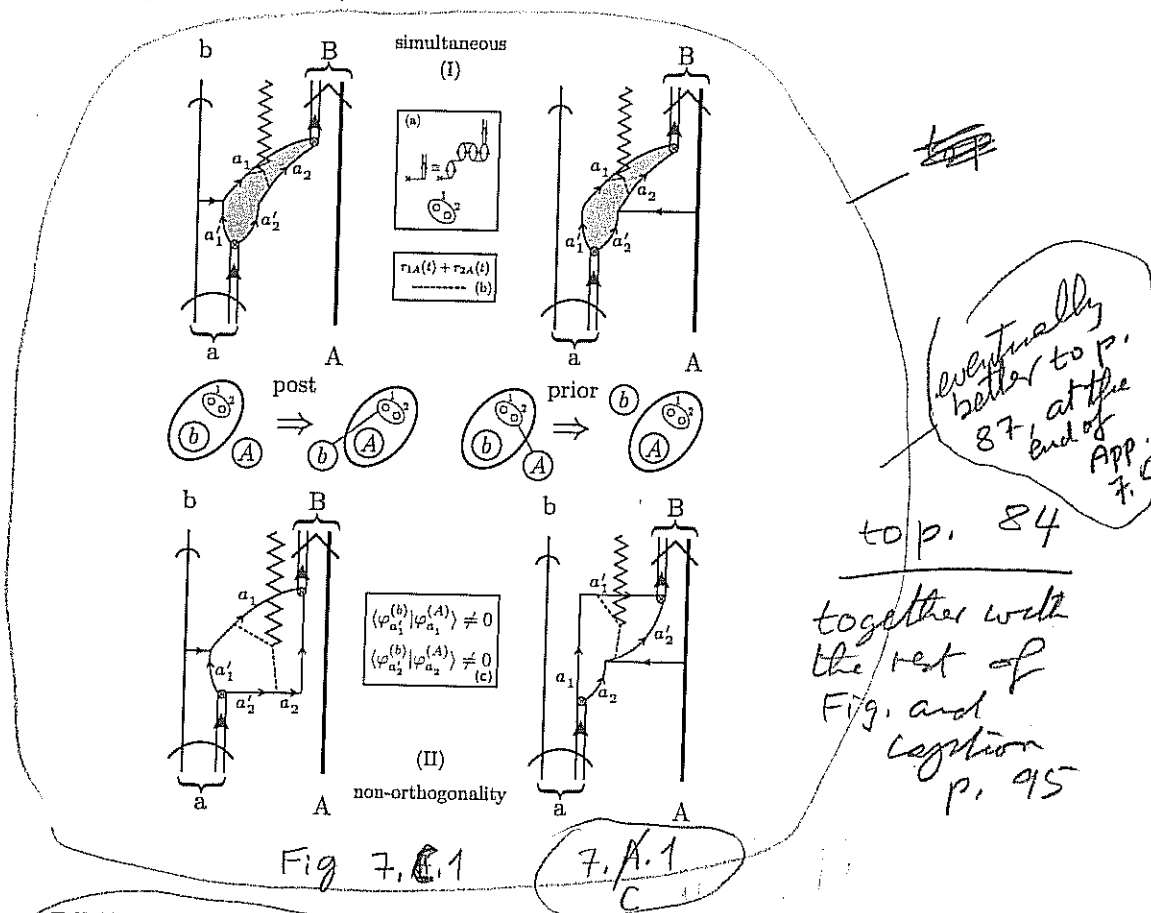 b
B
simultaneous
(I)
B
(a)
1
2
a₁
a₂
a₁'
a₂'
r₁A(t) + r₂A(t)
(b)
a₁
a₂
a₁'
a₂'
a
A
a
A
b
1
2
A
post
⇒
b
1
2
A
b
1
2
A
prior
⇒
b
1
2
A
b
B
b
B
a₁
a₁'
a₂'
a₂
⟨φ_{a₁'}^{(b)}|φ_{a₁}^{(A)}⟩ ≠ 0
⟨φ_{a₂'}^{(b)}|φ_{a₂}^{(A)}⟩ ≠ 0
(c)
a₁'
a₂'
a₁
a₂
(II)
non-orthogonality
a
A
a
A
Fig 7.C.1
7.A.1
C
eventually
better to p.
87, at the
end of
App.
7.C
to p. 84
together with
the rest of
Fig. and
caption
p. 95